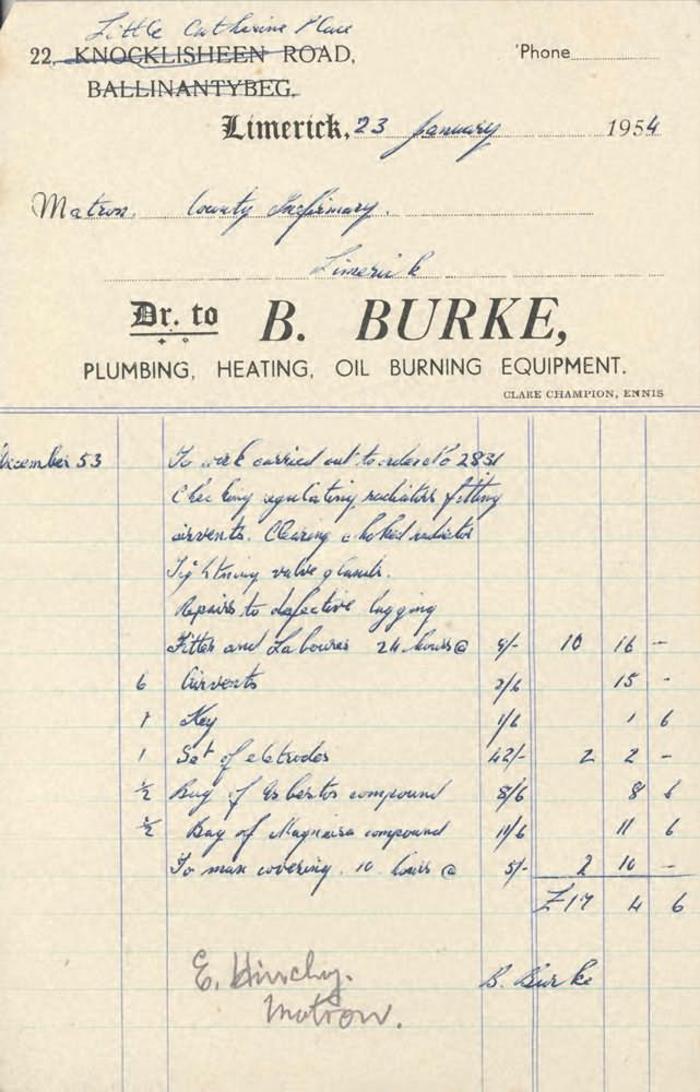 Little Catherine Place
22, KNOCKLISHEEN ROAD, 'Phone
BALLINANTYBEG,
Limerick, 23 January 1954
Matron. County Infirmary.
Limerick
Dr. to B. BURKE,
PLUMBING, HEATING, OIL BURNING EQUIPMENT.
CLARE CHAMPION, ENNIS
December 53 To work carried out to order No 2831
Checking regulating radiators fitting
airvents. Clearing choked radiator
Tightning valve glands.
Repairs to defective lagging
Fitter and Labourer 24 hours @ 9/- 10 16 -
6 Airvents 2/6 15 -
1 Key 1/6 1 6
1 Set of eletrodes 42/- 2 2 -
½ Bag of Asbestos compound 8/6 8 6
½ Bag of Magnesia compound 11/6 11 6
To man covering. 10 hours @ 5/- 2 10 -
£17 4 6
E. Hinchy. B. Burke
Matron.